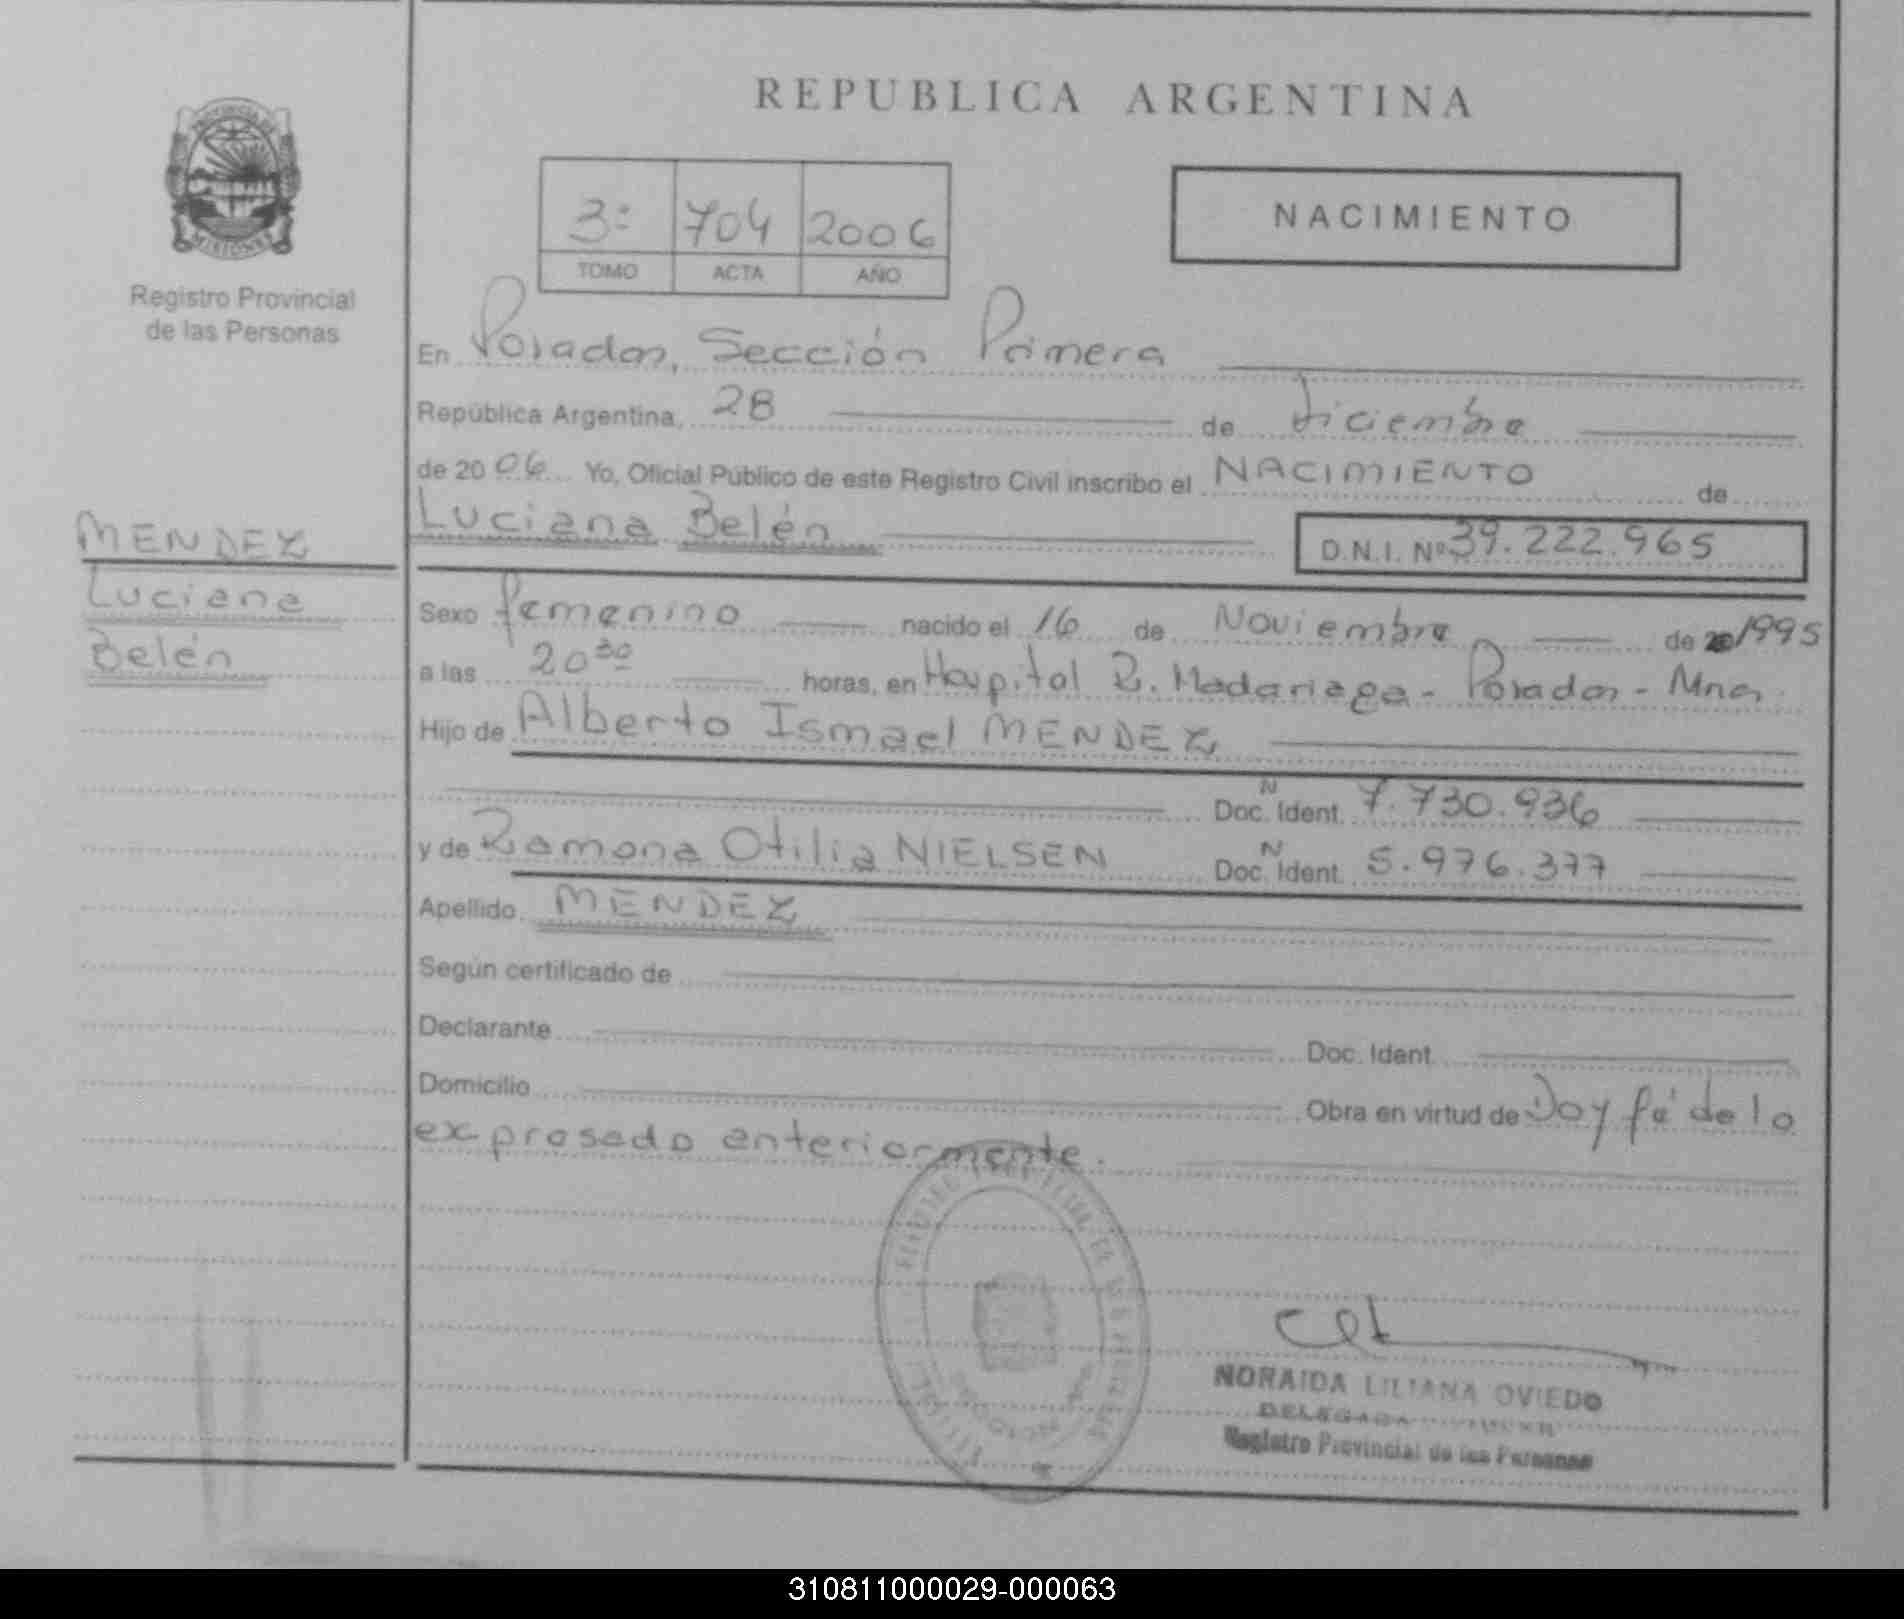 REPUBLICA ARGENTINA
PROVINCIA DE
MISIONES
Registro Provincial
de las Personas
3º 704 2006
TOMO ACTA AÑO
NACIMIENTO
En Posadas, Sección Primera
República Argentina, 28 de diciembre
de 20 06 Yo, Oficial Público de este Registro Civil inscribo el NACIMIENTO de
Luciana Belén D.N.I. Nº 39.222.965
MENDEZ
Luciana
Belén
Sexo femenino nacido el 16 de Noviembre de 1995
a las 20 30 horas, en Hospital R. Madariaga - Posadas - Mnes
Hijo de Alberto Ismael MENDEZ
N
Doc. Ident. 7.730.936
y de Ramona Otilia NIELSEN N Doc. Ident. 5.976.377
Apellido MENDEZ
Según certificado de
Declarante Doc. Ident.
Domicilio Obra en virtud de Doy fé de lo
expresado anteriormente.
NORAIDA LILIANA OVIEDO
DELEGADA
Registro Provincial de las Personas
310811000029-000063